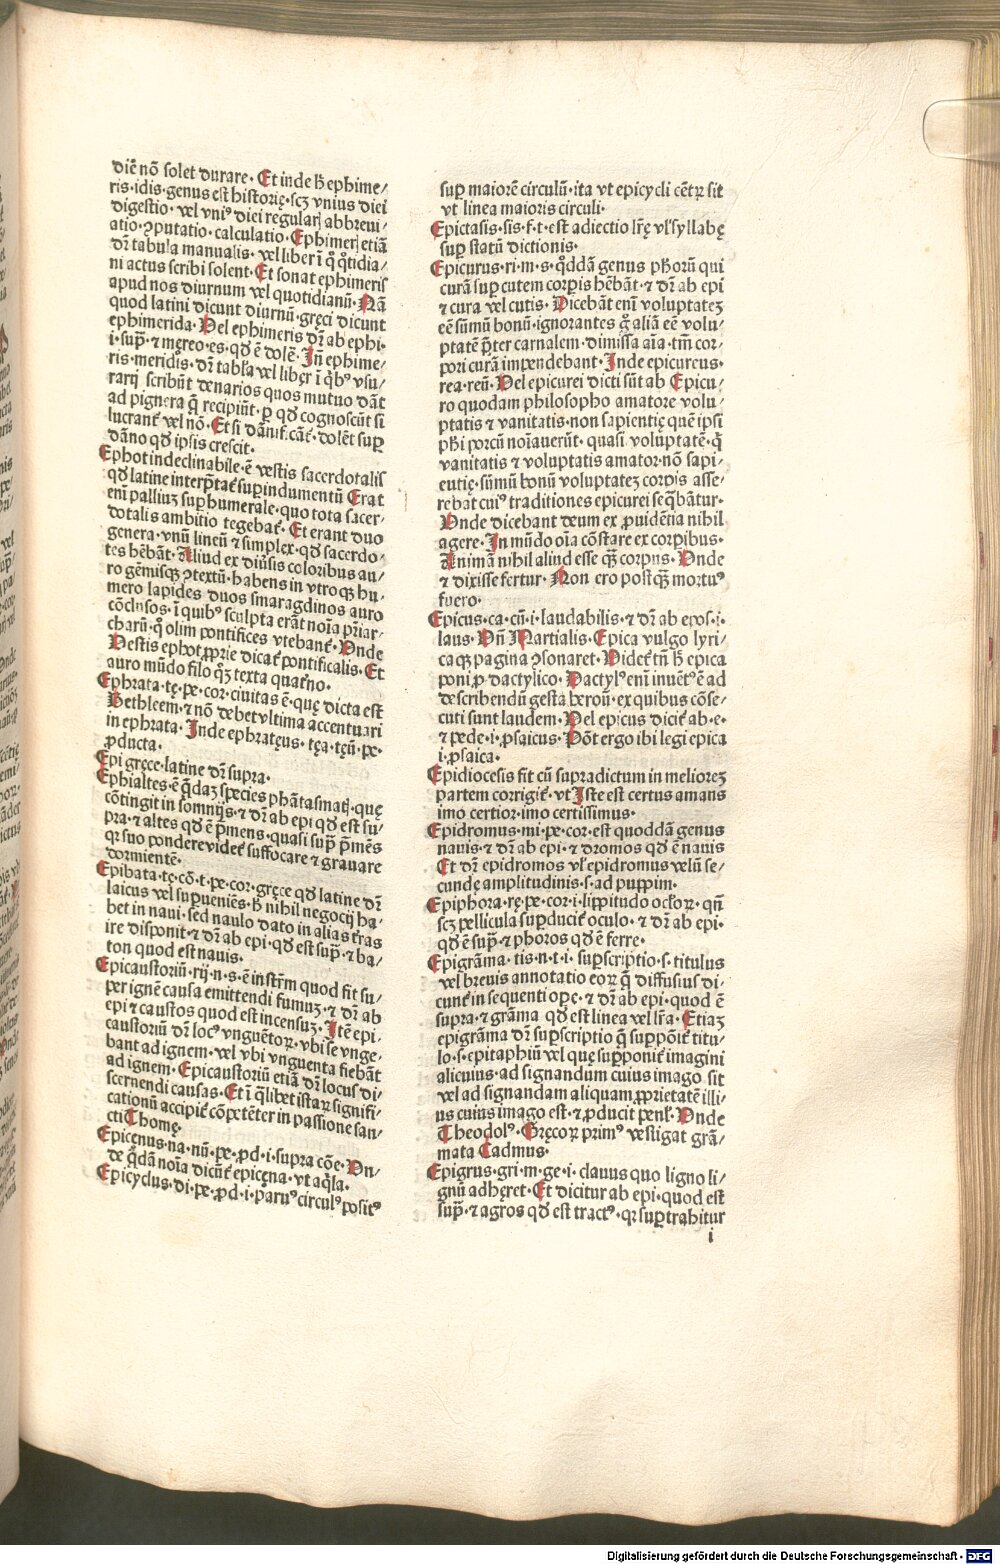 diē nō solet durare. Et inde h̄ ephime/
ris.idis.genus est historię.scꝫ vnius diei
digestio.vel vniꝰ diei regulaꝝ abbreui/
atio.ꝯputatio.calculatio.Ephimeꝝ etiā
dr̄ tabula manualis.vel liber ī q̊ q̊tidia/
ni actus scribi solent.Et sonat ephimeris
apud nos diurnum vel quotidianū.Nā
quod latini dicunt diurnū.gręci dicunt
ephimerida.Vel ephimeris dr̄ ab ephi.
i.sup̄.⁊ męreo.es.qđ ē dolē.Iñ ephime/
ris.meridꝭ.dr̄ tabl̓a vel liber ī q̇bꝰ vsu/
rarij scribūt denarios quos mutuo dāt
ad pignera q̄ recipiūt.ꝑ qđ cognoscūt si
lucrant̓ vel nō.Et si dānif.cāt̓.dolēt suꝑ
dāno qđ ipsis crescit.
Ephot indeclinabile.ē vestis sacerdotalis
qđ latine interp̄tat̓ suꝑindumentū Erat
enī palliuꝫ suꝑhumerale.quo tota sacer-
dotalis ambitio tegebat̓.Et erant duo
genera.vnū lineū ⁊ simplex.qđ sacerdo-
tes hēbāt.Aliud ex diūsis coloribus au/
ro gēmisqꝫ ꝯtextū.habens in vtroqꝫ hu-
mero lapides duos smaragdinos auro
cōclusos.ī quibꝰ sculpta erāt noīa pr̄iar-
charū.q̊ olim pontifices vtebant̓.Vnde
Vestis ephot ꝓprie dicat̓ pontificalis.Et
auro mūdo filo q̊ꝫ texta quat̓no.
Ephrata.tę.pe.cor.ciuitas ē.quę dicta est
Bethleem.⁊ nō debet vltima accentuari
in ephrata.Inde ephratęus.tęa.tęū.pe.
ꝓducta.
Epi gręce.latine dr̄ supra.
Ephialtes.ē q̄daꝫ species phātasmatꝭ.quę
cōtingit in somnijs.⁊ dr̄ ab epi qđ est su/
pra.⁊ altes qđ ē p̄mens.quasi sup̄ p̄mēs
qꝛ suo pondere videt̓ suffocare ⁊ grauare
dormientē.
Epibata.tę.cō.t.pe.cor.gręce qđ latine dr̄
laicus vel suꝑueniēs.h̄ nihil negocij ha/
bet in naui.sed naulo dato in alias t̓ras
ire disponit.⁊ dr̄ ab epi.qđ est sup̄.⁊ ba/
ton quod est nauis.
Epicaustoriū.rij.n.s.ē instr̄m quod fit su/
per ignē causa emittendi fumuꝫ.⁊ dr̄ ab
epi ⁊ caustos quod est incensuꝫ.Itē epi-
caustoriū dr̄ locꝰ vnguētoꝝ.vbi se vnge-
bant ad ignem.vel vbi vnguenta fiebāt
ad ignem.Epicaustoriū etiā dr̄ locus di-
scernendi causas.Et ī q̄libet istaꝝ signifi-
cationū accipit̓ cōpetēter in passione san-
cti Thomę.
Epicenus.na.nū.pe.ꝓd.i.supra cōe.Vn/
de q̄dā noīa dicūt̓ epicęna.vt aq̇la.
Epicyclus.di.pe.ꝓd.i.paruꝰ circulꝰ positꝰ
suꝑ maiorē circulū.ita vt epicycli cētꝝ sit
vt linea maioris circuli.
Epictasis.sis.f.t.est adiectio lr̄ę vl̓ syllabę
suꝑ statū dictionis.
Epicurus.ri.m.s.q̊ddā genus ph̓oꝛū qui
curā suꝑ cutem corꝑis hēbāt.⁊ dr̄ ab epi
⁊ cura vel cutis.Dicebāt enī voluptateꝫ
eē sūmū bonū.ignorantes q̊ aliā eē volu/
ptatē p̄ter carnalem.dimissa aīa.tm̄ cor-
pori curā impendebant.Inde epicureus.
rea.reū.Vel epicurei dicti sūt ab Epicu/
ro quodam philosopho amatore volu/
ptatis ⁊ vanitatis.non sapientię quē ipsi
ph̓i porcū noīauerūt.quasi voluptatē.q̄
vanitatis ⁊ voluptatis amator.nō sapi/
entię.sūmū bonū voluptateꝫ corꝑis asse-
rebat cuiꝰ traditiones epicurei seq̄bātur.
Vnde dicebant deum ex ꝓuidētia nihil
agere.In mūdo oīa cōstare ex corꝑibus.
Animā nihil aliud esse qꝫ corpus.Vnde
⁊ dixisse fertur.Non ero postqꝫ mortuꝰ
fuero.
Epicus.ca.cū.i.laudabilis.⁊ dr̄ ab epos.i.
laus.Vñ Martialis.Epica vulgo lyri/
caqꝫ pagina ꝯsonaret.Videt̓ tn̄ h̄ epica
poni ꝓ dactylico.Dactylꝰ enī inuētꝰ ē ad
describendū gesta heroū.ex quibus cōse-
cuti sunt laudem.Vel epicus dicit̓ ab.e.
⁊ pede.i.ꝓsaicus.Pōt ergo ibi legi epica
i.ꝓsaica.
Epidiocesis fit cū supradictum in melioreꝫ
partem corrigit̓.vt Iste est certus amans
imo certior.imo certissimus.
Epidromus.mi.pe.cor.est quoddā genus
nauis.⁊ dr̄ ab epi.⁊ dromos qđ ē nauis
Et dr̄ epidromos vl̓ epidromus velū se/
cundę amplitudinis.s.ad puppim.
Epiphora.rę.pe.cor.i.lippitudo ocl̓oꝝ.qn̄
scꝫ pellicula suꝑducit̓ oculo.⁊ dr̄ ab epi.
qđ ē sup̄.⁊ phoros qđ ē ferre.
Epigrāma.tis.n.t.i.suꝑscriptio.s.titulus
vel breuis annotatio eoꝝ q̄ diffusius di/
cunt̓ in sequenti oꝑe.⁊ dr̄ ab epi.quod ē
supra.⁊ grāma qđ est linea vel lr̄a.Etiaꝫ
epigrāma dr̄ suꝑscriptio q̄ suꝑpōit̓ titu/
lo.s.epitaphiū vel que suꝑponit̓ imagini
alicuius.ad signandum cuius imago sit
vel ad signandam aliquam ꝓprietatē illi/
us cuius imago est.⁊ ꝓducit penl̓.Vnde
Theodolꝰ.Gręcoꝝ primꝰ vestigat grā/
mata Cadmus.
Epigrus.gri.m.ge.i.clauus quo ligno li/
gnū adhęret.Et dicitur ab epi.quod est
sup̄.⁊ agros qđ est tractꝰ.qꝛ suꝑtrahitur
i
Digitalisierung gefördert durch die Deutsche Forschungsgemeinschaft - DFG